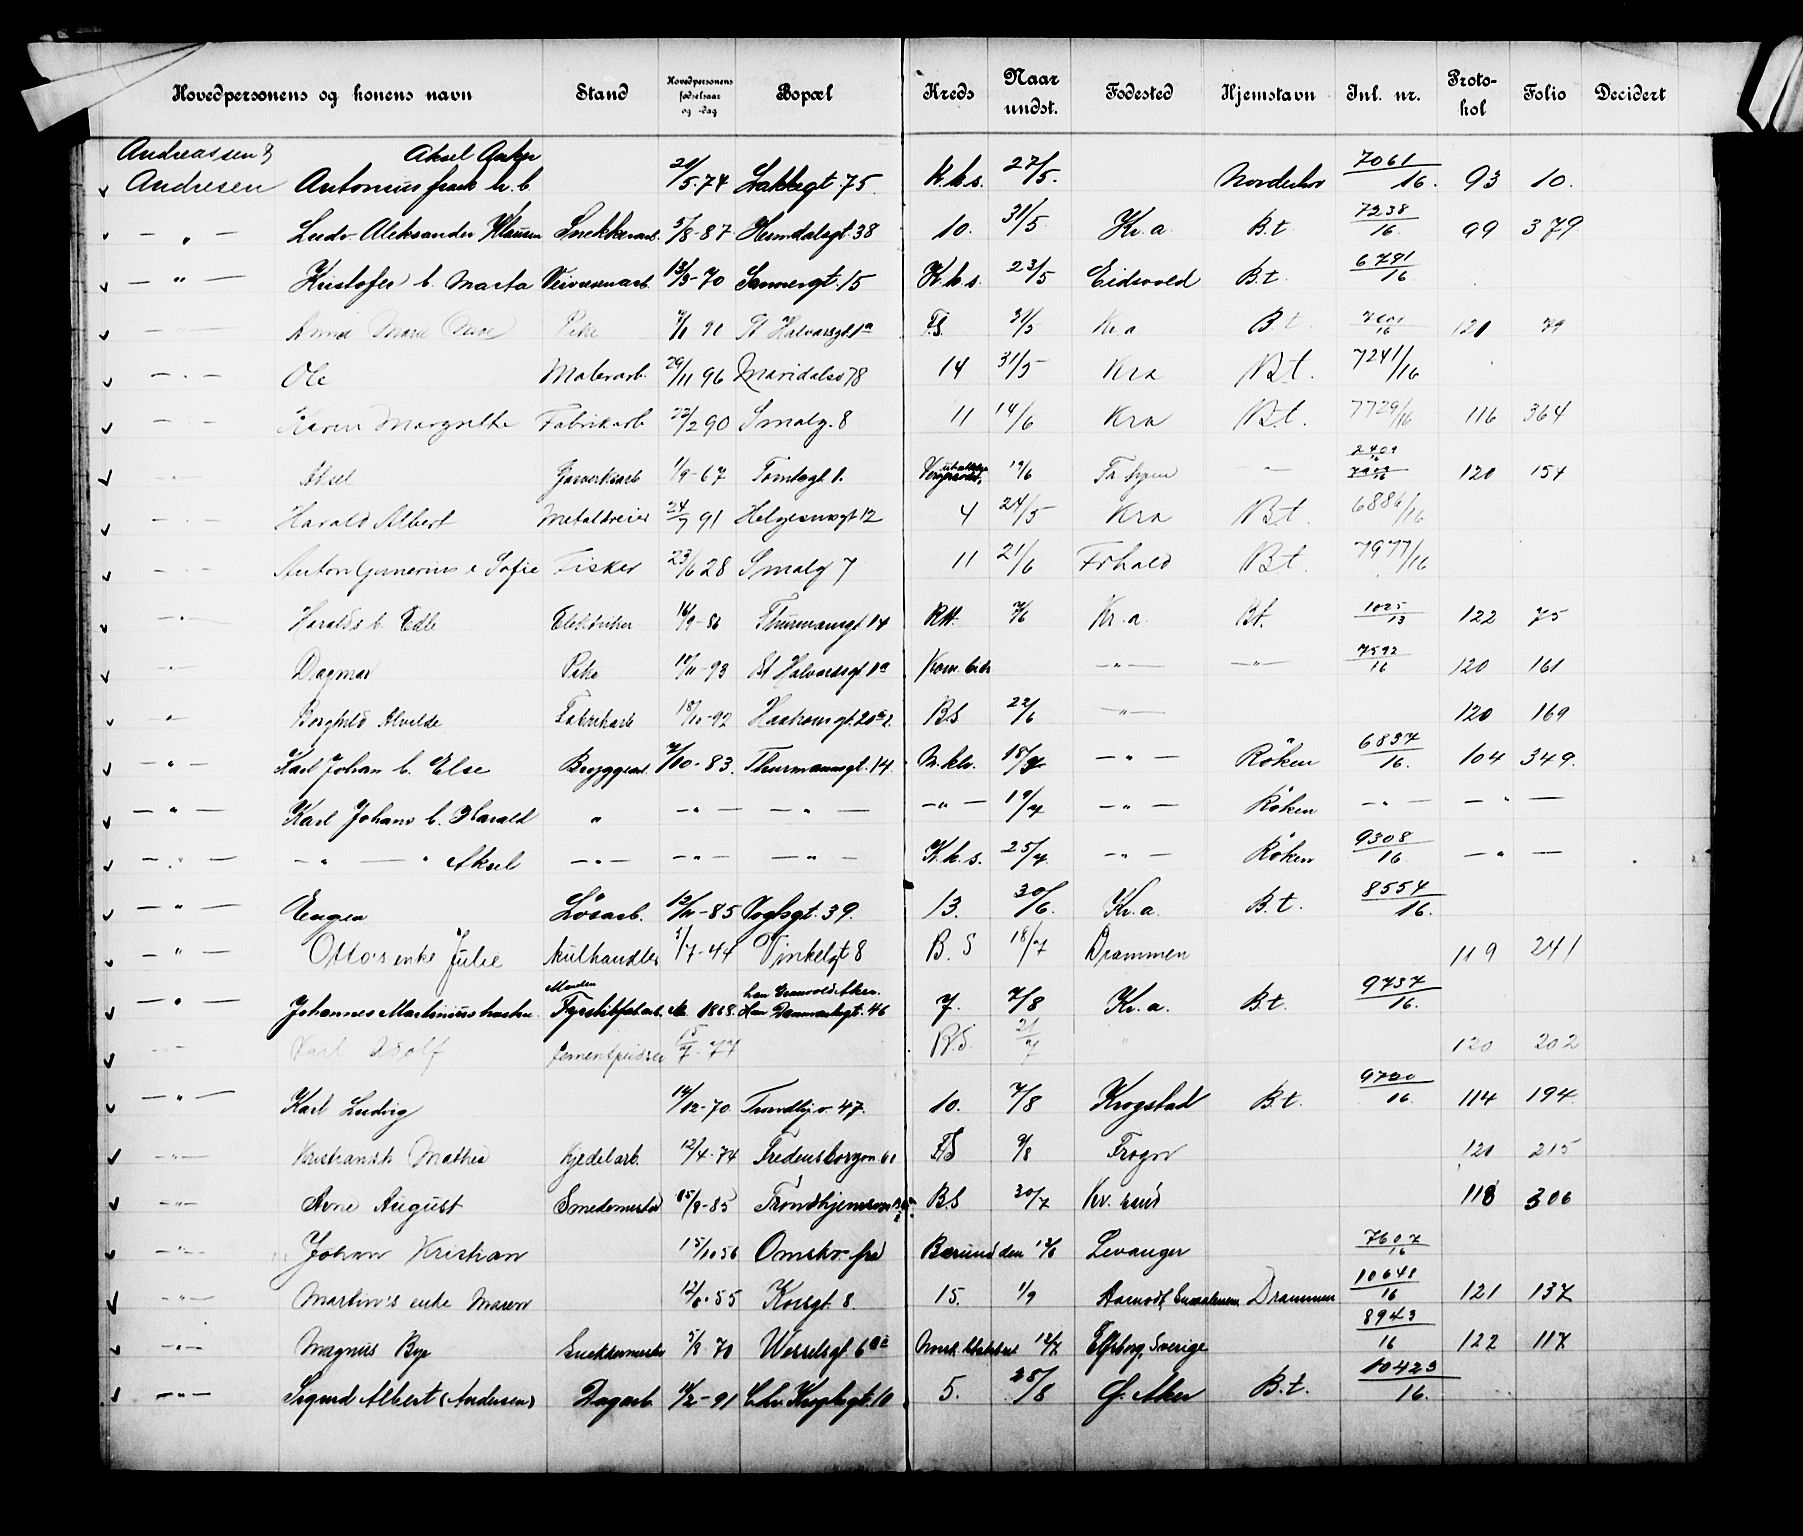 Hovedpersonens og konens navn Stand Hovedpersonens fødselsaar og -dag Bopæl Kreds Naar undst. Fødested Hjemstavn Inl. nr. Protokol Folio Decidert
Andreassen & Aksel
Andresen Antonius 5.74 Lakkegt. 75 K.k.s. 27/5. Norderhov 7061/16. 93 10.
— „ — Ludv. Aleksander Klausen Snekkerarb. 5/8-87 Heimdalsgt. 38 10. 31/5 Kr.a B.t. 7238/16 99 379
— „ — Kristofer b. Marta Veivæsenarb. 13/3-70 Sannergt. 15 K.k.s. 23/5 Eidsvold B.t. 6791/16.
— „ — Anna Marie Pike 91 St Halvardsgt 1a F.S. 31/5 Kr.a B t 16 120 79
— „ — Ole Malerarb. 29/11 96 Maridalsv 78 14 31/5 Kra B.t. 7241/16
— „ — Karen Margrethe Fabrikarb 22/2 90 Smalg. 8 11 14/6 Kra B.t. 7729/16 116 364
— „ — Aksel Gasverksarb 1/9-67 Tomtegt 1. 19/6 — „ — 2409/16 120 154
— „ — Harald Albert Metaldreier 24/7 91 Helgesensgt 12 4 24/5 Kra B.t. 6886/16
— „ — Anton Gunerius e Sofie Fisker 23/6 28 Smalg 7 11 21/6 Frhald B.t. 7977/16
— „ — Haralds b. Edle Elektriker 14/9-86 Thurmannsgt. 14 7/6 Kr.a. B.t. 1025/13 122 75
— „ — Dagmar Pike 18/11-93 St Halvardsgt 1a — „ — — „ — 7592/16 120 161
— „ — Borghild Alvilde Fabrikarb 18/10-92 B.S 22/6 — „ — 120 169
— „ — Karl Johan b. Else Bryggearb. 7/10-83. Thurmannsgt. 14. 18/7 — „ — Røken 6837/16. 104 349.
— „ — Karl Johans b. Harald „ — „ — — „ — — „ — 19/7 — „ — Røken — „ — — „ —
— „ — — „ — „ Aksel — „ — — „ — — „ — K.k.s. 25/7. — „ — Røken 9308/16. — „ —
— „ — Eugen Løsarb. 12/11-85 Vogtsgt. 39. 13. 30/6. Kr.a. B.t. 8554/16.
— „ — Otto's enke Julie Kulhandler 1/7-44 Vinkelgt 8 B.S 18/7 Drammen 119 241
— „ — Johannes Martinius hustru Manden Fyrstikfabarb. 1868. Han Danmarksgt. 46 7. 7/8 Kr.a. B.t. 9737/16.
— „ — Karl Adolf Cementpudser 15/7-77 B.S. 21/7 „ 120 202
— „ — Karl Ludvig 14/12-70 Trondhj.v. 47. 10. 7/8 Krogstad B.t. 9720/16. 114 194.
— „ — Kristiansth Mathea Kjedelarb. 12/4-74 Fredensborgvn 61 F.S 9/8 Frogn 120 215
— „ — Arne August Smedmester 15/8-85 Trondhjemsvn B.S 20/7 Kr. sand 118 306
— „ — Johan Kristian 15/10 56 Omstr. fra Bærum den 13/6 Levanger 7607/16
— „ — Martin's enke Maren 12/6-55 Korsgt. 8. 15. 1/9 Drammen 10641/16 121 137
— „ — Magnus Bye Snekkermester 5/8 70 Wesselsgt. 6 13/7 Elfsborg, Sverige 8943/16 122 117
— „ — Sigurd Albert (Andersen) Dagarb. 4/2-91 Chr. Kroghsgt. 10 5. 25/8 Ø. Aker B.t. 10423/16.